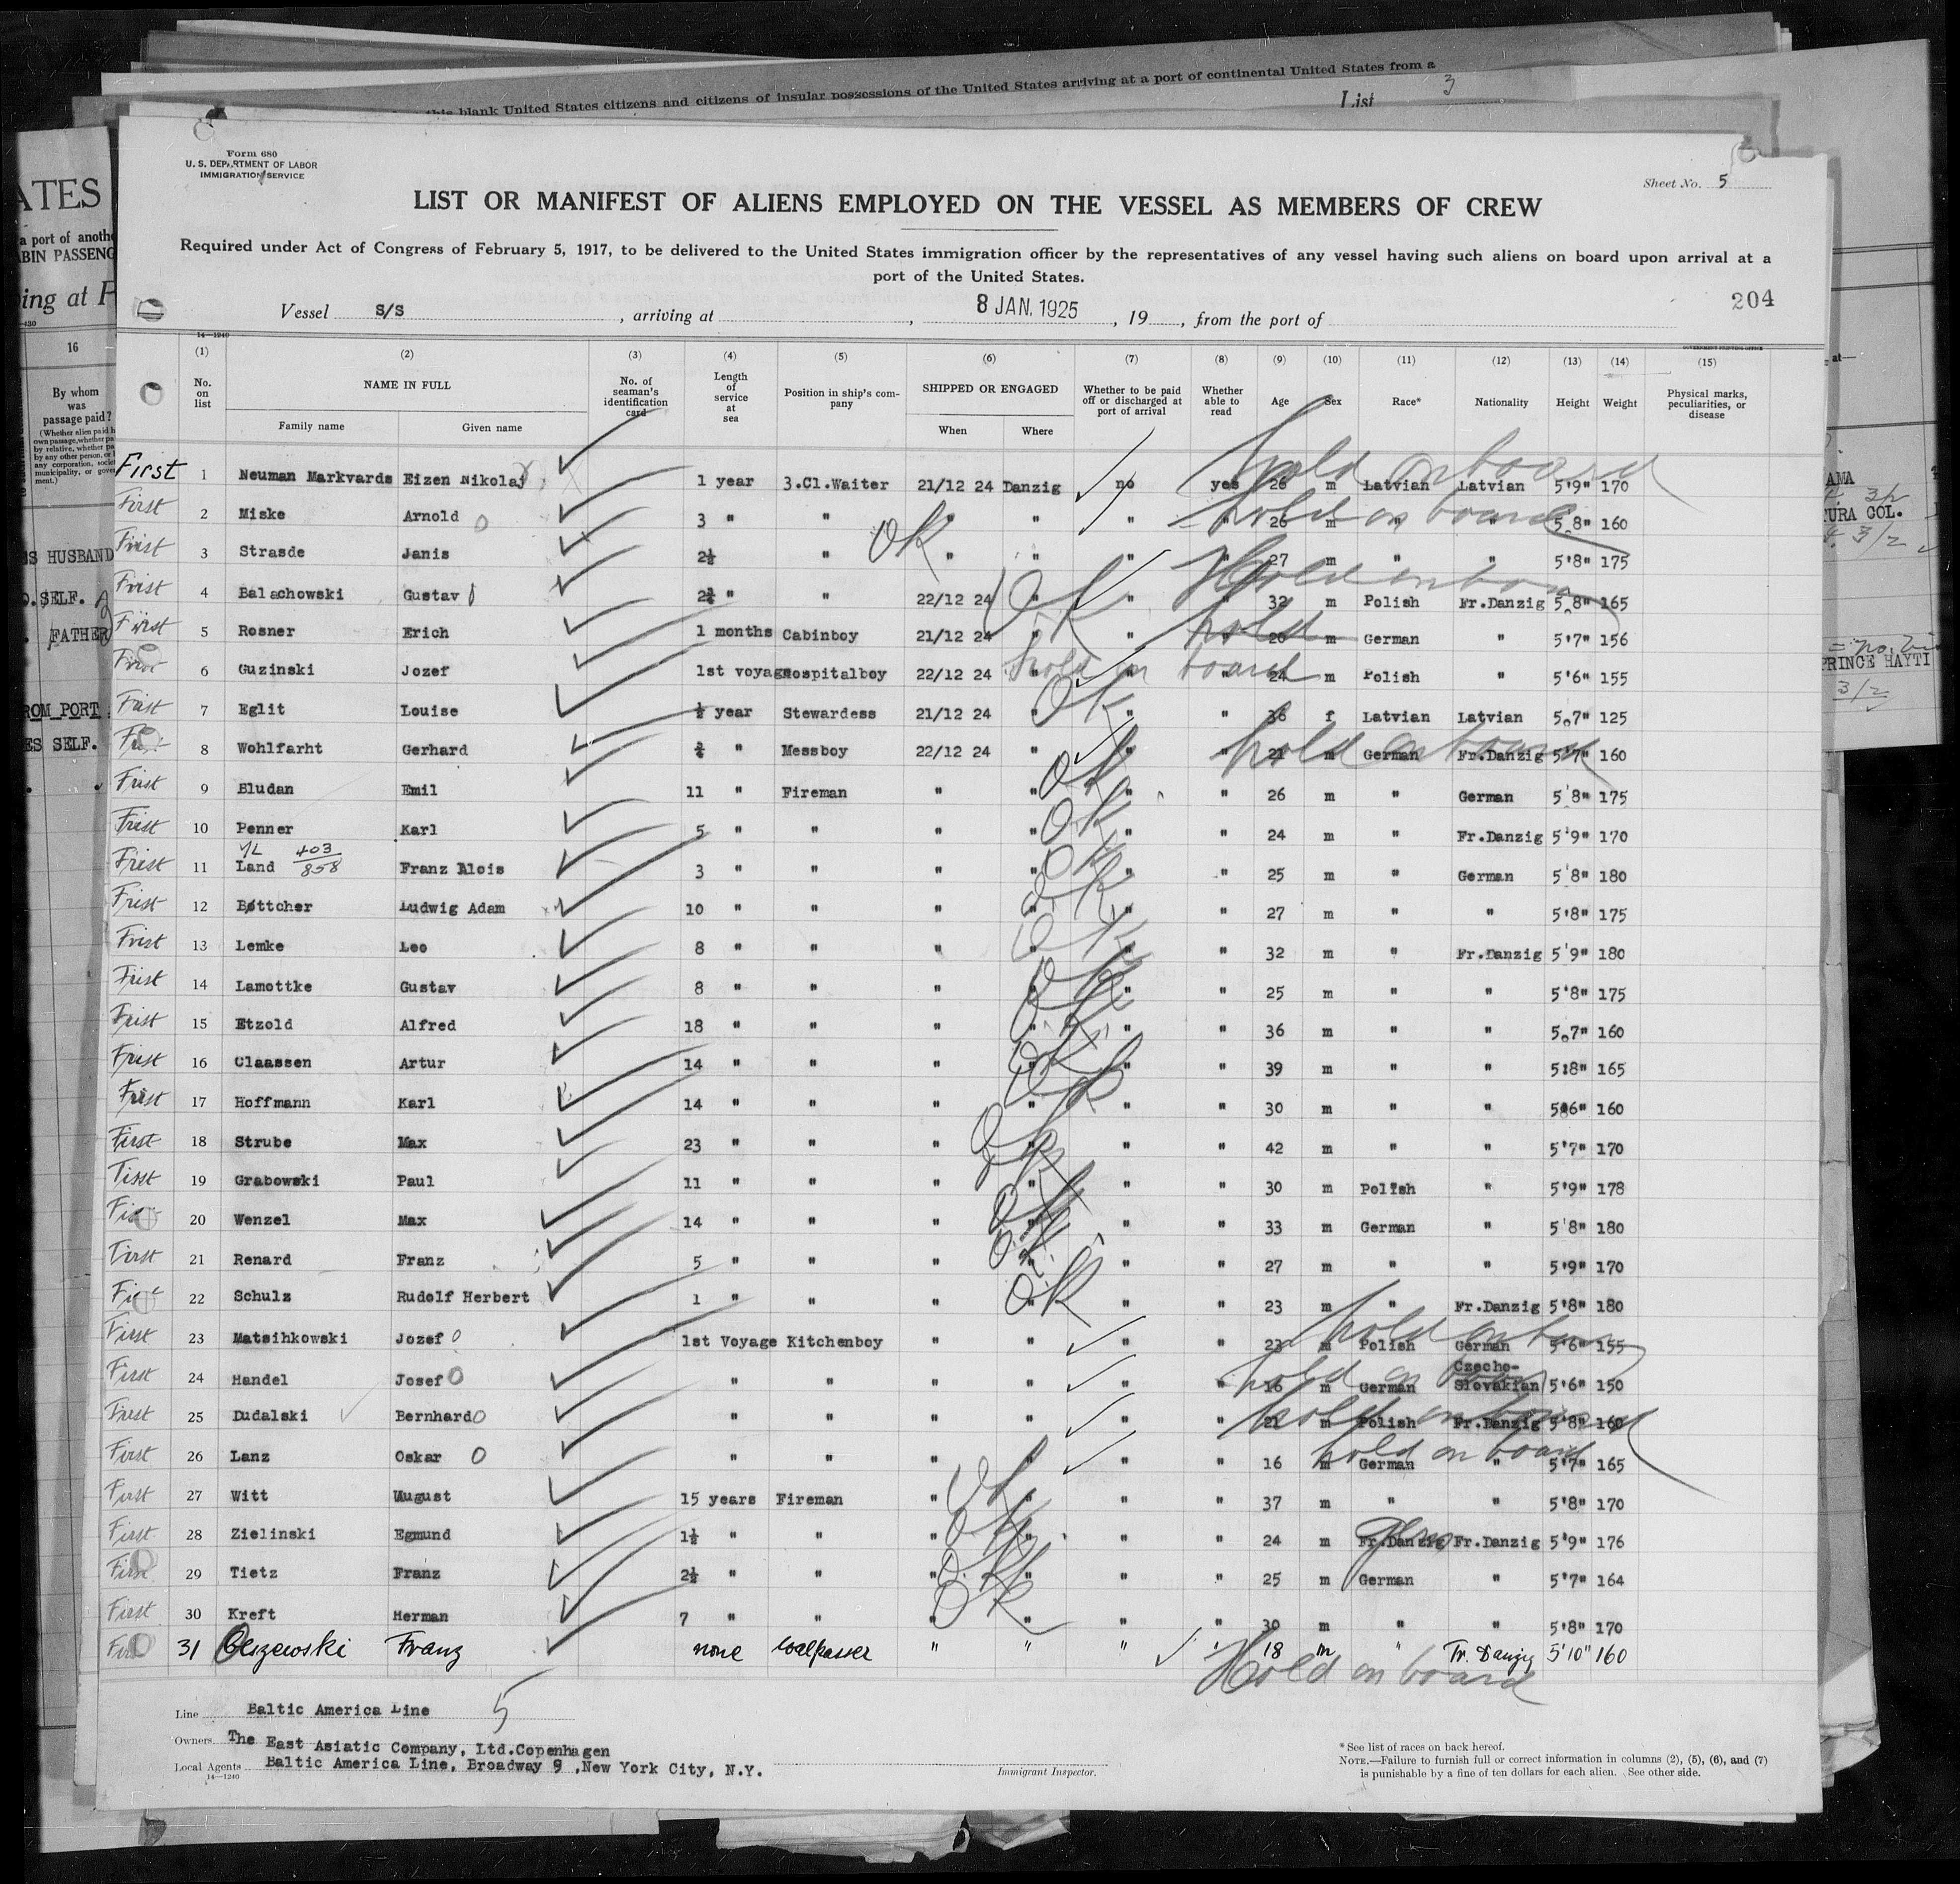 this blank United States citizens and citizens of insular possessions of the United States arriving at a port of continental United States from a
List 3
Form 680
U. S. DEPARTMENT OF LABOR
IMMIGRATION SERVICE
Sheet No. 5
LIST OR MANIFEST OF ALIENS EMPLOYED ON THE VESSEL AS MEMBERS OF CREW
Required under Act of Congress of February 5, 1917, to be delivered to the United States immigration officer by the representatives of any vessel having such aliens on board upon arrival at a
port of the United States.
204
Vessel S/S , arriving at , 8 JAN. 1925 , 19 , from the port of
14—1240
(1) (2) (3) (4) (5) (6) (7) (8) (9) (10) (11) (12) (13) (14) (15)
No. on list NAME IN FULL Family name Given name No. of seaman's identification card Length of service at sea Position in ship's company SHIPPED OR ENGAGED When Where Whether to be paid off or discharged at port of arrival Whether able to read Age Sex Race* Nationality Height Weight Physical marks, peculiarities, or disease
First 1 Neuman Markvards Eizen Nikolaj 1 year 3.Cl.Waiter 21/12 24 Danzig no yes 26 m Latvian Latvian 5'9" 170 hold on board
First 2 Miske Arnold 3 " " " " " " 26 m " " 5.8" 160 hold on board
First 3 Strasde Janis 2½ " OK " " " " 27 m " " 5'8" 175
First 4 Balachowski Gustav " " 22/12 24 " " " 32 m Polish Fr.Danzig 5.8" 165 Hold on board
First 5 Rosner Erich 1 months Cabinboy 21/12 24 " OK " " 20 m German " 5'7" 156 hold
First 6 Guzinski Jozef 1st voyage Hospitalboy 22/12 24 " " " 24 m Polish " 5'6" 155 hold on board
First 7 Eglit Louise ½ year Stewardess 21/12 24 " OK " " 36 f Latvian Latvian 5.7" 125
First 8 Wohlfarht Gerhard " Messboy 22/12 24 " " " 21 m German Fr.Danzig 5'7" 160 hold on board
First 9 Bludan Emil 11 " Fireman " " OK " " 26 m " German 5'8" 175
First 10 Penner Karl 5 " " " " OK " " 24 m " Fr.Danzig 5'9" 170
403
First 11 Land 858 Franz Alois 3 " " " " OK " " 25 m " German 5'8" 180
First 12 Bøttcher Ludwig Adam 10 " " " " OK " " 27 m " " 5'8" 175
First 13 Lemke Leo 8 " " " " OK " " 32 m " Fr.Danzig 5'9" 180
First 14 Lamottke Gustav 8 " " " " OK " " 25 m " " 5'8" 175
First 15 Etzold Alfred 18 " " " " OK " " 36 m " " 5.7" 160
First 16 Claassen Artur 14 " " " " OK " " 39 m " " 5'8" 165
First 17 Hoffmann Karl 14 " " " " OK " " 30 m " " 5'6" 160
First 18 Strube Max 23 " " " " OK " " 42 m " " 5'7" 170
First 19 Grabowski Paul 11 " " " " OK " " 30 m Polish " 5'9" 178
First 20 Wenzel Max 14 " " " " OK " " 33 m German " 5'8" 180
First 21 Renard Franz 5 " " " " OK " " 27 m " " 5'9" 170
First 22 Schulz Rudolf Herbert 1 " " " " OK " " 23 m " Fr.Danzig 5'8" 180
First 23 Matsihkowski Jozef 1st Voyage Kitchenboy " " " " 23 m Polish German 5'6" 155 hold on board
First 24 Handel Josef " " " " " " 16 m German Czecho-Slovakian 5'6" 150 hold on board
First 25 Dudalski Bernhard " " " " " " 21 m Polish Fr.Danzig 5'8" 160 hold on board
First 26 Lanz Oskar " " " " " " 16 m German " 5'7" 165 hold on board
First 27 Witt August 15 years Fireman " OK " " " 37 m " " 5'8" 170
First 28 Zielinski Egmund 1½ " " " OK " " " 24 m Fr.Danzig Germ Fr.Danzig 5'9" 176
First 29 Tietz Franz 2½ " " " OK " " " 25 m German " 5'7" 164
First 30 Kreft Herman 7 " " " OK " " " 30 m " " 5'8" 170
First 31 Olszewski Franz none Coalpasser " " " " 18 m " Fr. Danzig 5'10" 160
Hold on board
Line Baltic America Line 5
Owners The East Asiatic Company, Ltd.Copenhagen
Local Agents Baltic America Line, Broadway 9 ,New York City, N.Y.
14—1240
Immigrant Inspector.
* See list of races on back hereof.
NOTE.—Failure to furnish full or correct information in columns (2), (5), (6), and (7)
is punishable by a fine of ten dollars for each alien. See other side.
ATES
a port of anoth
ABIN PASSENG
ing at
16
By whom
was
passage paid?
HUSBAND
SELF.
FATHER
ROM PORT
ES SELF.
AMA
TURA COL.
3/2
PRINCE HAYTI
3/2